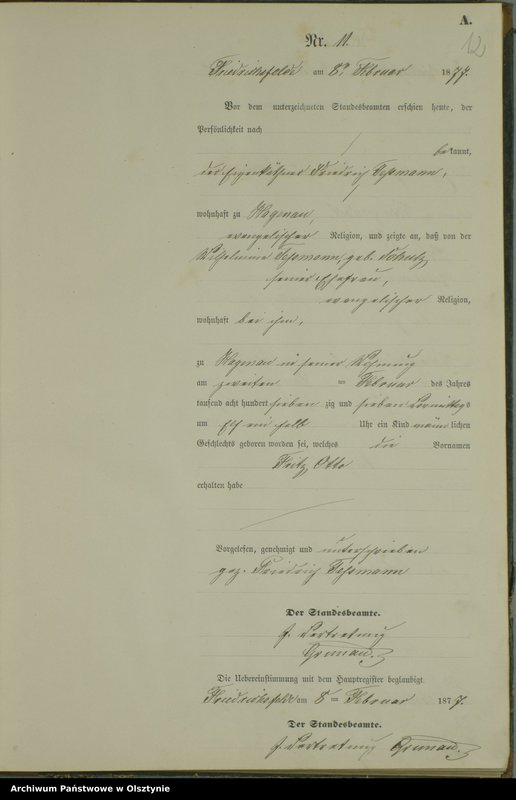 A.
12
Nr. 11.
Friedrichsfelde am 8. Februar 1877.
Vor dem unterzeichneten Standesbeamten erschien heute, der
Persönlichkeit nach
bekannt,
der Eigenkäthner Friedrich
wohnhaft zu
evangelischer Religion, und zeigte an, daß von der
Wilhelmine geb. Schulz
seiner Ehefrau,
evangelischer Religion,
wohnhaft bei ihm,
zu in seiner Wohnung
am zweiten ten Februar des Jahres
tausend acht hundert sieben zig und sieben Vormittags
um elf ein halb Uhr ein Kind männlichen
Geschlechts geboren worden sei, welches die Vornamen
Fritz Otto
erhalten habe
Vorgelesen, genehmigt und unterschrieben
gez. Friedrich
Der Standesbeamte.
J. Vertretung
Grunau.
Die Uebereinstimmung mit dem Hauptregister beglaubigt
Friedrichsfelde am 8 = Februar 1877.
Der Standesbeamte.
J. Vertretung Grunau.
Archiwum Państwowe w Olsztynie